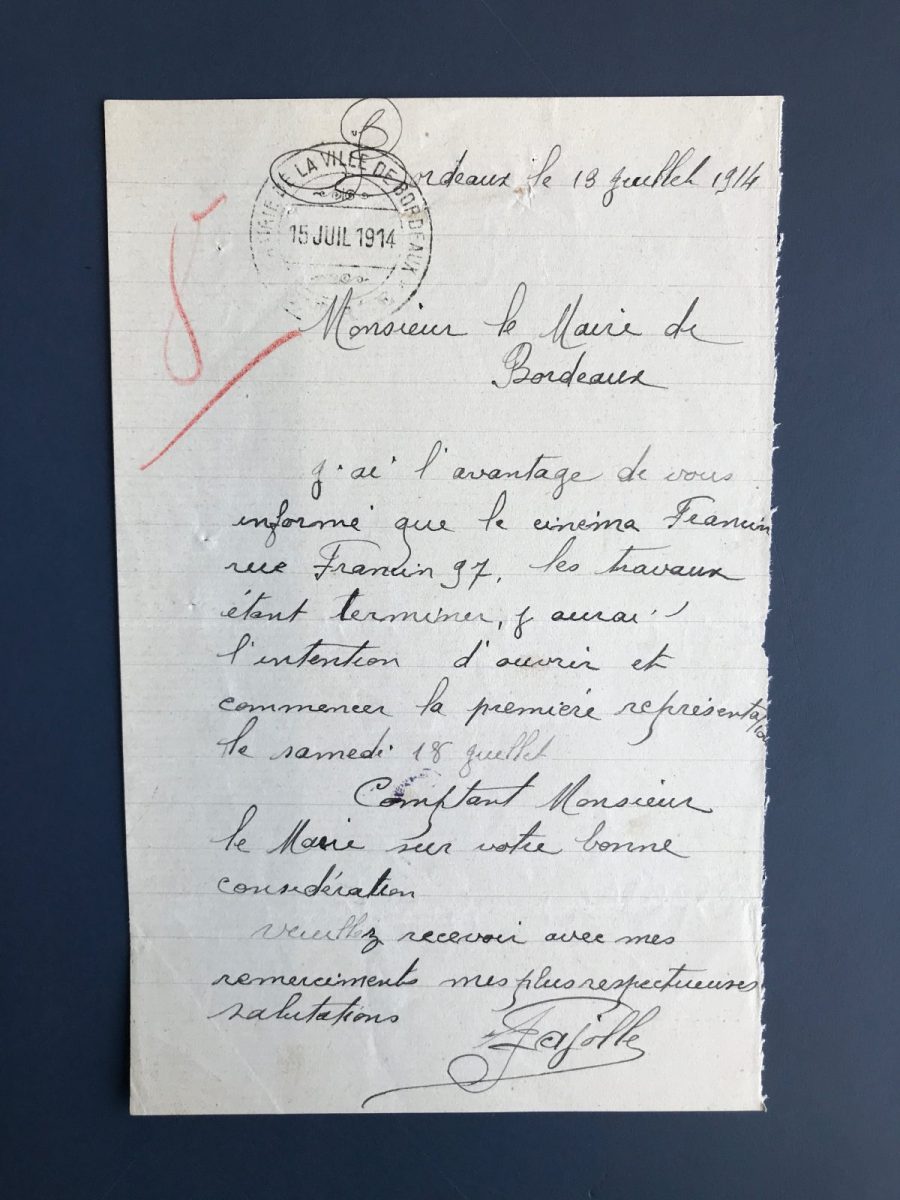 Bordeaux le 13 juillet 1914
MAIRIE DE LA VILLE DE BORDEAUX
15 JUIL 1914
Monsieur le Maire de
Bordeaux
j'ai l'avantage de vous
informé que le cinéma Francin
rue Francin 97, les travaux
étant terminer, j aurai
l'intention d'ouvrir et
commencer la première représentation
le samedi 18 juillet
Comptant Monsieur
le Maire sur votre bonne
considération
veuillez recevoir avec mes
remerciments mes plus respectueuses
salutations